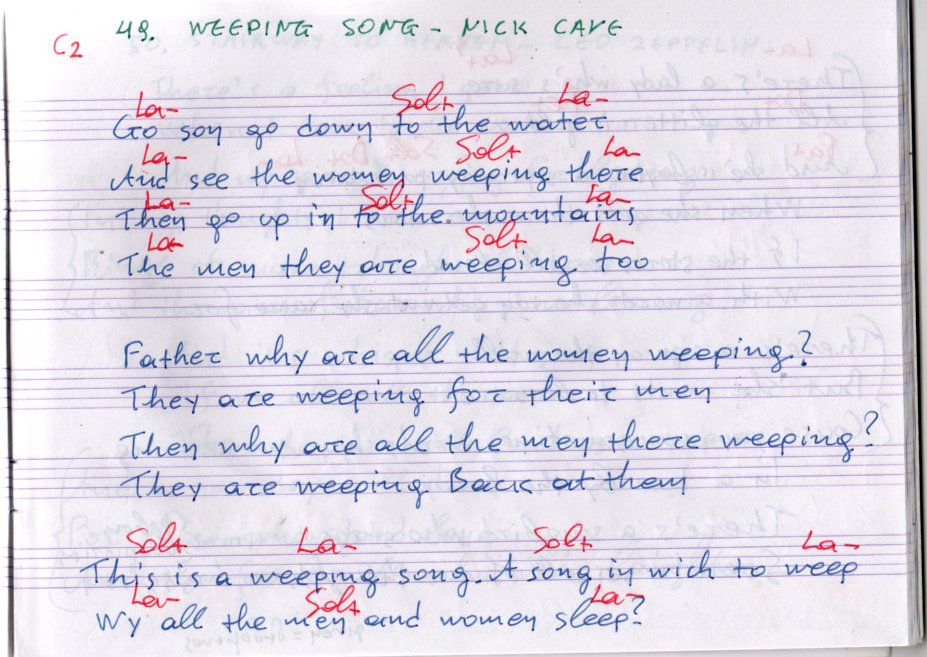 49. WEEPING SONG - NICK CAVE
C2
La- Sol+ La-
Go son go down to the water
La- Sol+ La-
And see the women weeping there
La- Sol+ La-
Then go up in to the mountains
La- Sol+ La-
The men they are weeping too
Father why are all the women weeping?
They are weeping for their men
Then why are all the men there weeping?
They are weeping Back at them
Sol+ La- Sol+ La-
This is a weeping song. A song in wich to weep
La- Sol+ La-
Wy all the men and women sleep?